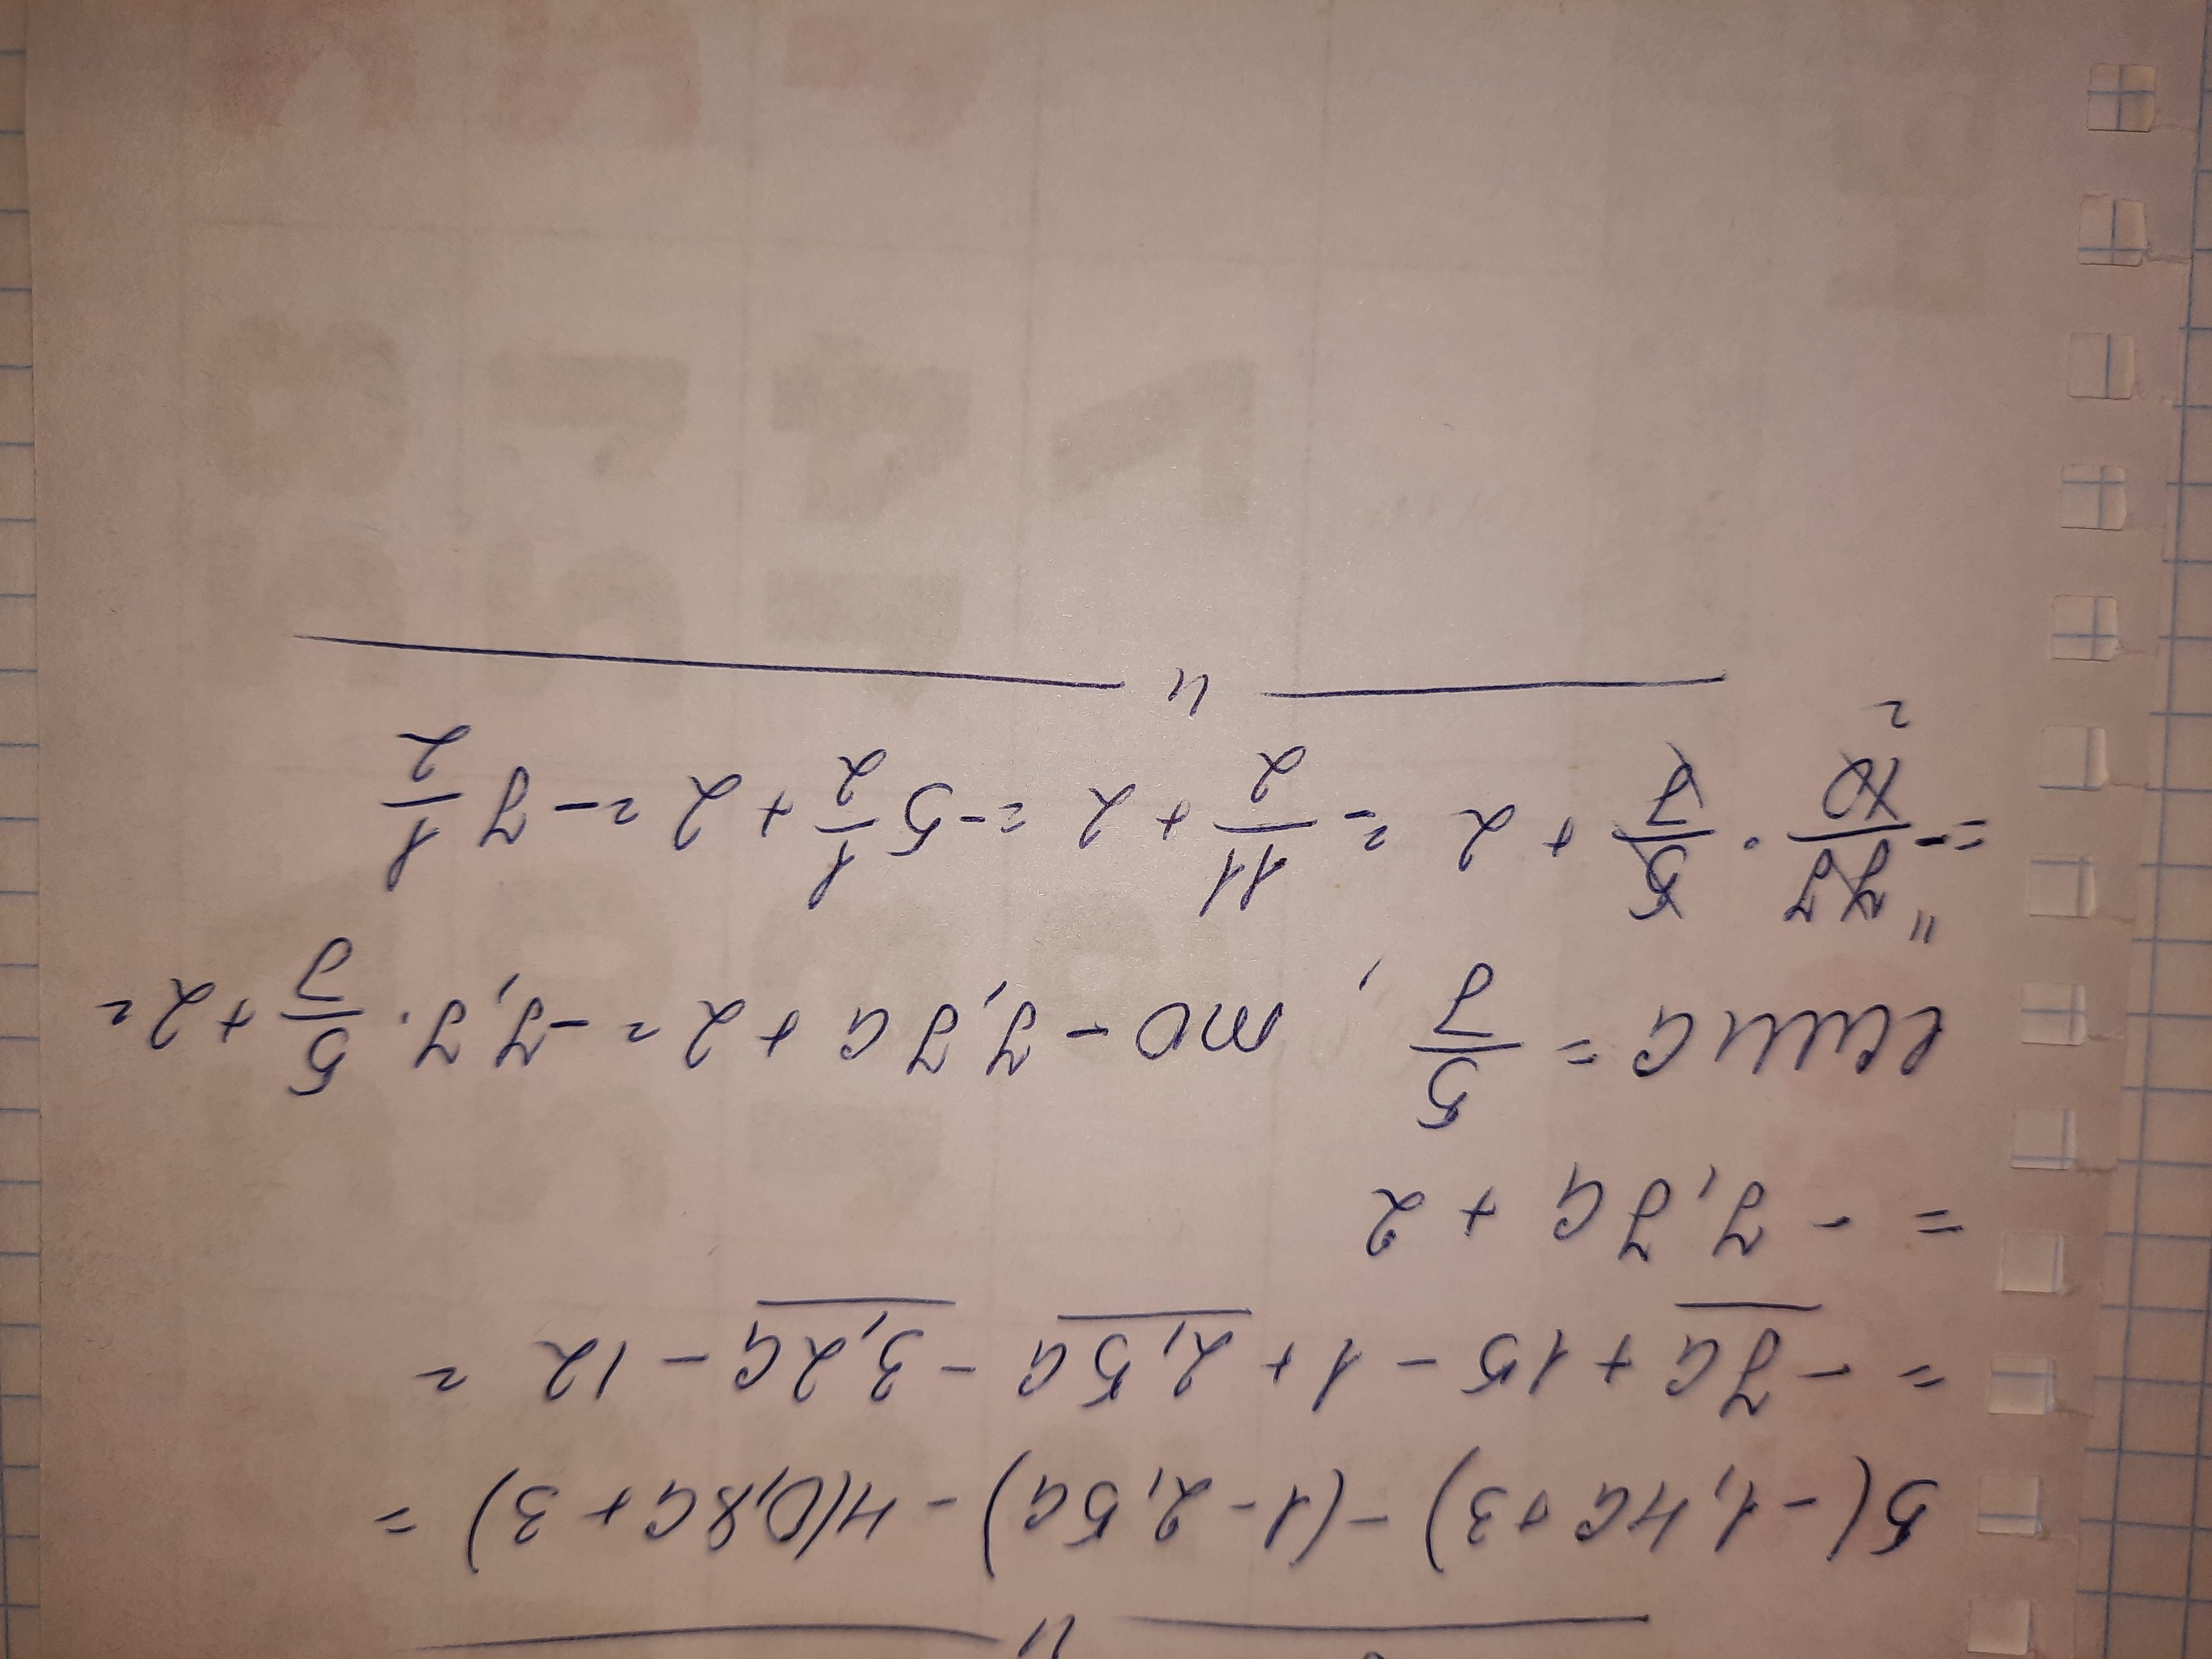 5(-1,4a+3)-(1-2,5a)-4(0,8a+3)=
=-7a+15-1+2,5a-3,2a-12=
=-7,7a+2
если a=5/7, то -7,7a+2=-7,7·5/7+2=
=-77/10·5/7+2=-11/2+2=-5 1/2+2=-7 1/2